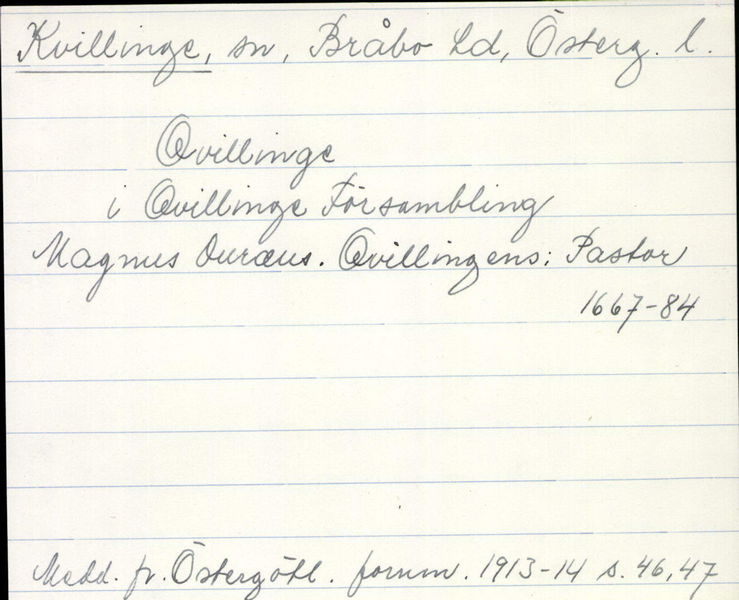 Kvillinge, sn, Bråbo hd, Österg. l.
Qvillinge
i Qvillinge Försambling
Magnus Duræus. Qvillingens: Pastor
1667-84
Medd. fr. Östergötl. fornm. 1913-14 s. 46, 47